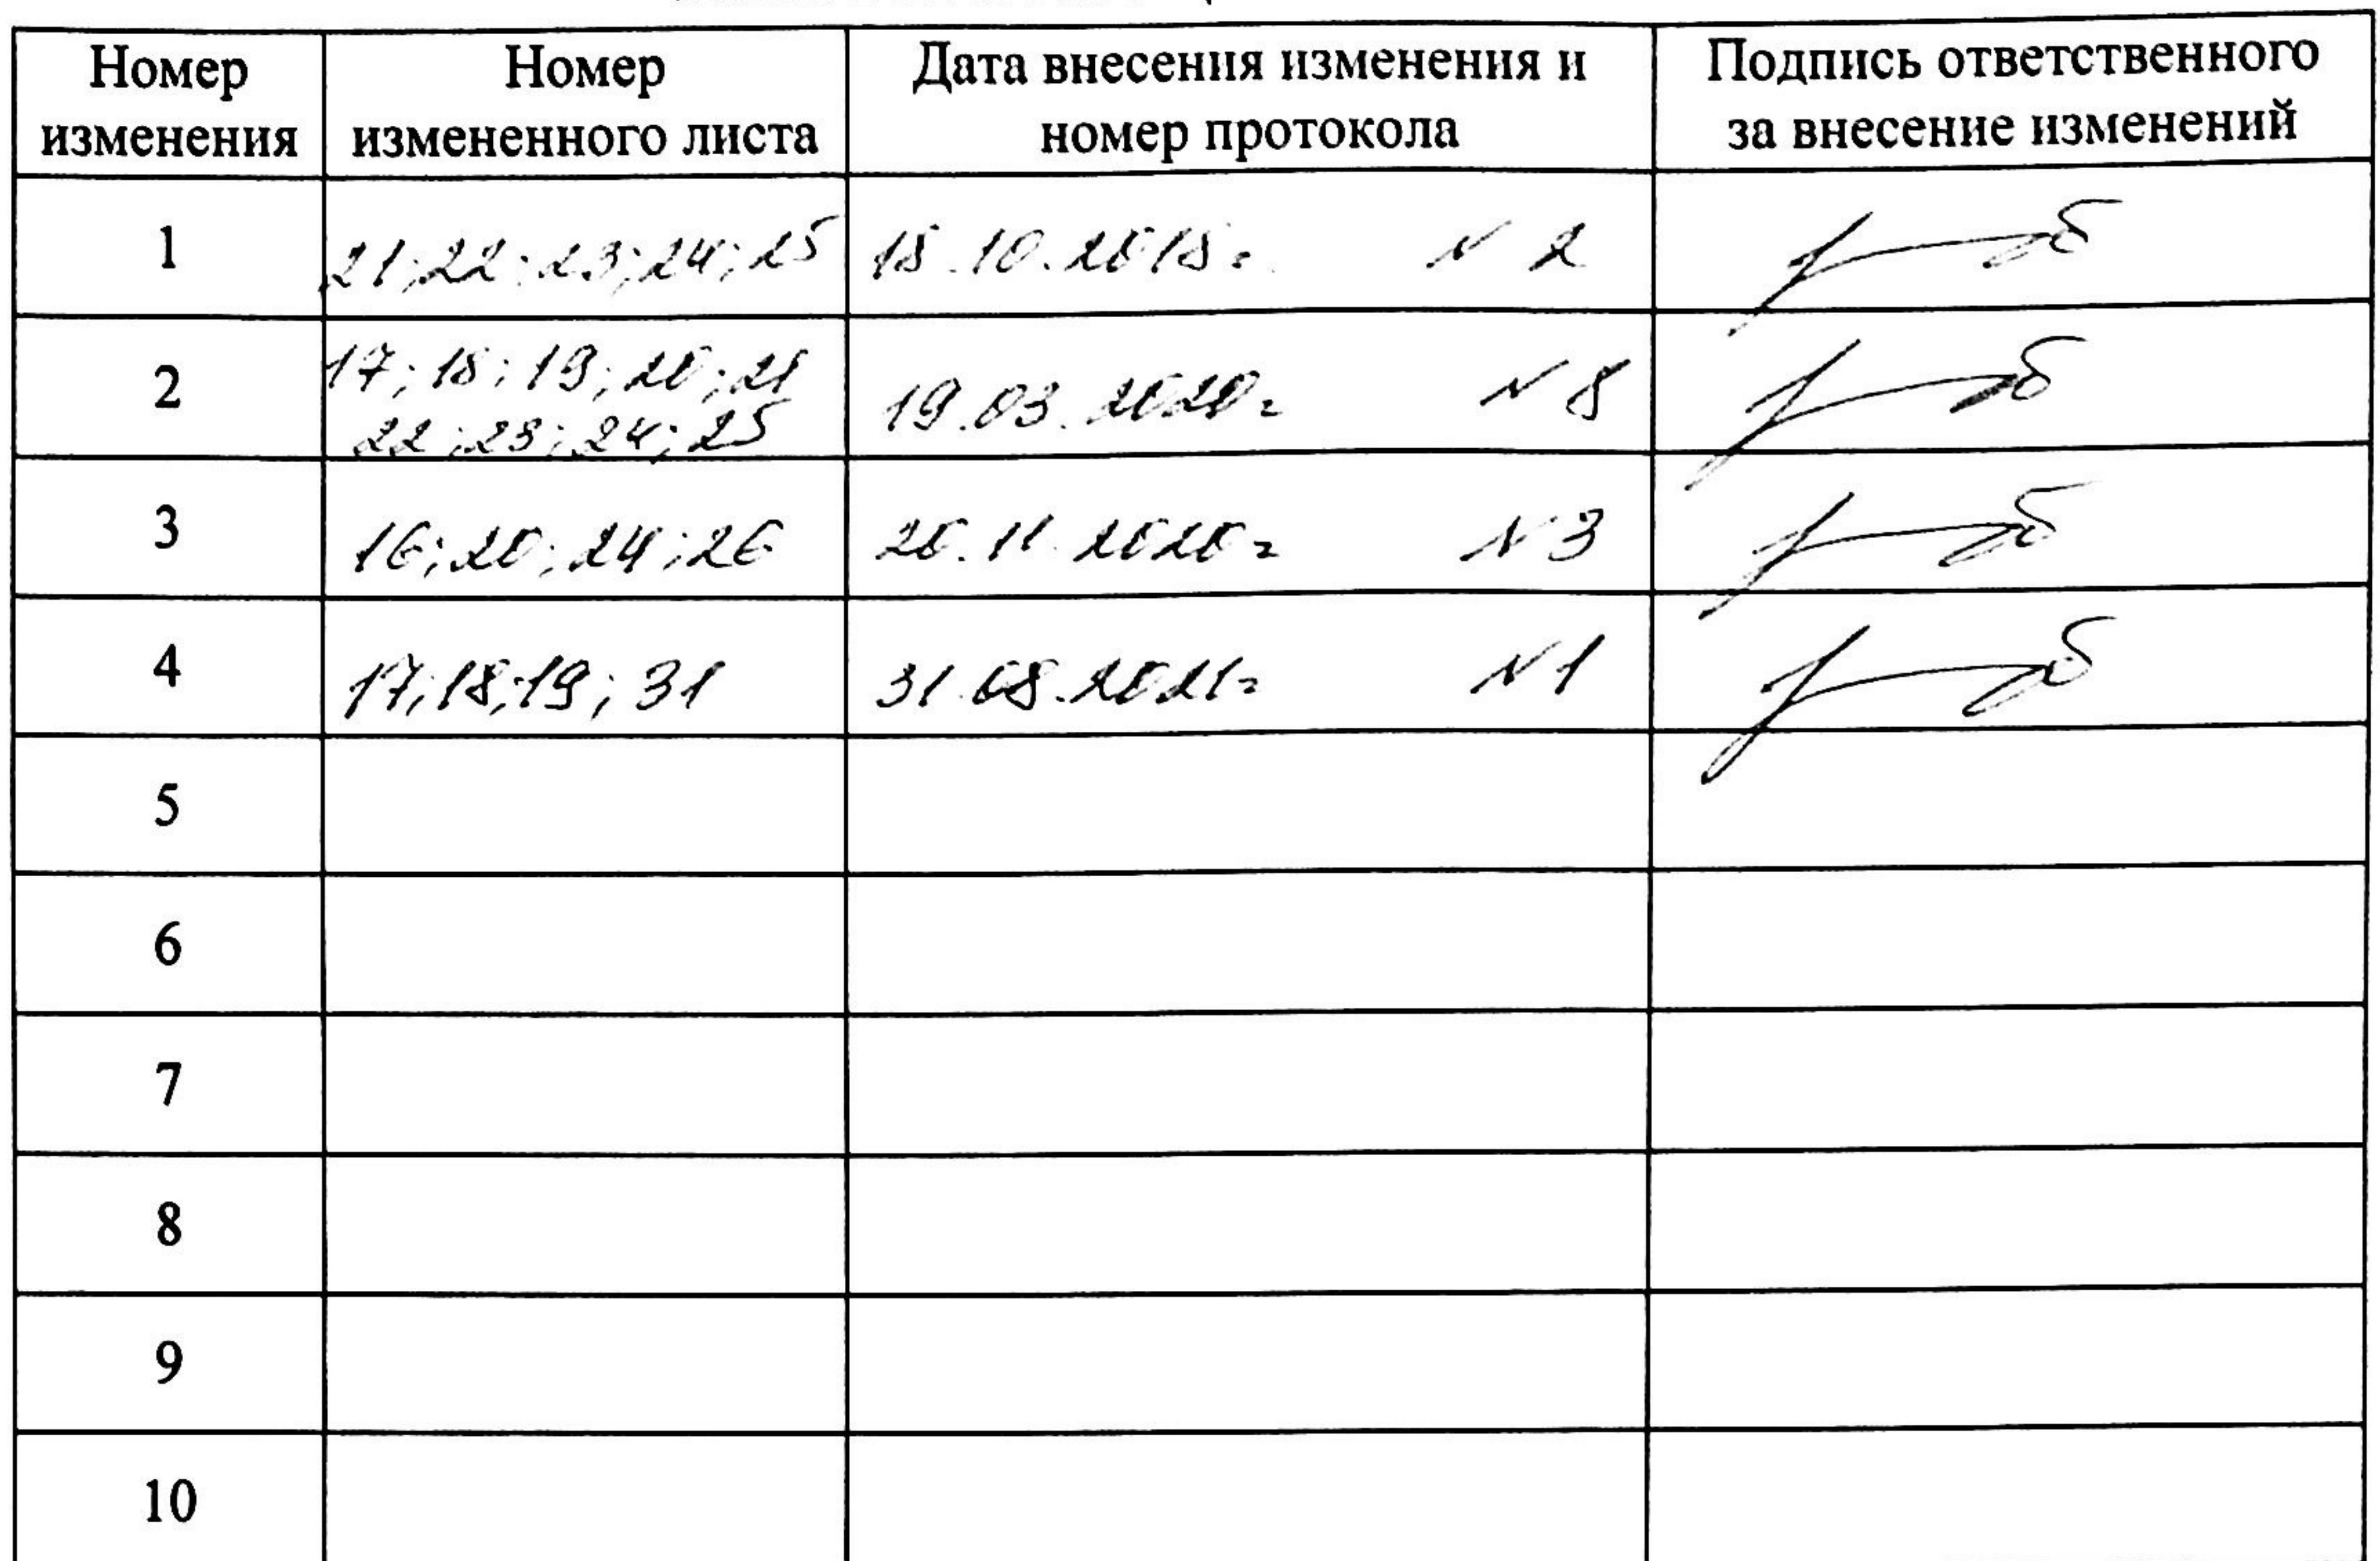 Номер изменения Номер измененного листа Дата внесения изменения и номер протокола Подпись ответственного за внесение изменений
1 21;22;23;24;25 18.10.2018г N 2
2 17;18;19;20;21
22;23;24;25 19.03.2020г N 8
3 16;20;24;26 26.11.2020г N 3
4 17;18;19;31 31.08.2021г N 1
5
6
7
8
9
10